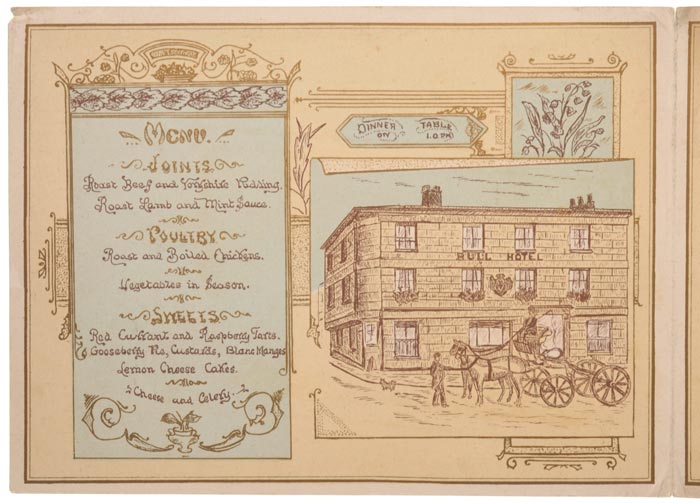 Menu.
Joints.
Roast Beef and Yorkshire Pudding.
Roast Lamb and Mint Sauce.
Poultry
Roast and Boiled Chickens.
Vegetables in Season.
Sweets
Red Currant and Raspberry Tarts.
Gooseberry Pie, Custards, Blanc Manges
Lemon Cheese Cakes.
Cheese and Celery.
Dinner on Table 1.0 PM
Bull Hotel